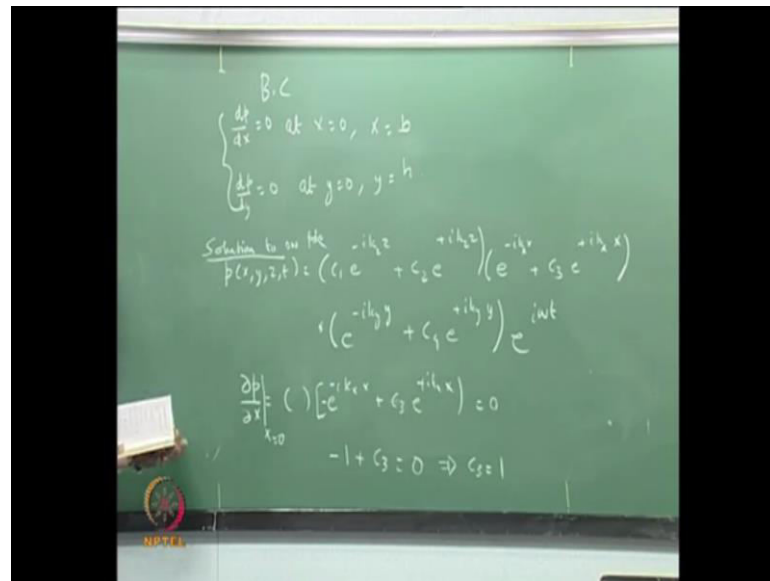 B.C
dp/dx = 0 at x=0, x=b
dp/dy = 0 at y=0, y=h
Solution to
p(x,y,z,t) = (C₁ e^{-ik_z z} + C₂ e^{+ik_z z}) (e^{-ik_x x} + C₃ e^{+ik_x x})
* (e^{-ik_y y} + C₄ e^{+ik_y y}) e^{iωt}
∂p/∂x|_{x=0} = ( ) [-e^{-ik_x x} + C₃ e^{+ik_x x}) = 0
-1 + C₃ = 0 ⇒ C₃ = 1
NPTEL